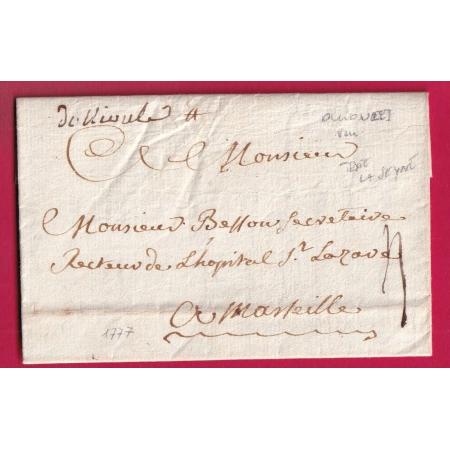 de Rioule
A Monsieur
Monsieur Besson Secretaire
Recteur de L'hopital St Lazare
A Marseille
1777